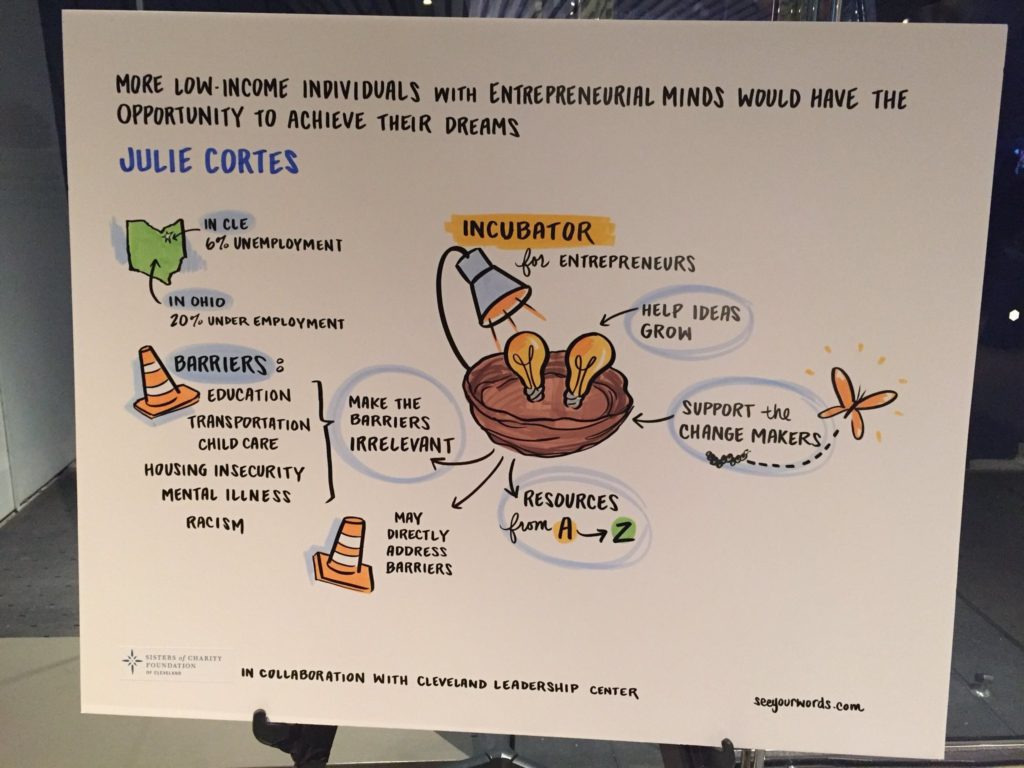 MORE LOW-INCOME INDIVIDUALS WITH ENTREPRENEURIAL MINDS WOULD HAVE THE
OPPORTUNITY TO ACHIEVE THEIR DREAMS
JULIE CORTES
IN CLE
6% UNEMPLOYMENT
IN OHIO
20% UNDER EMPLOYMENT
BARRIERS:
EDUCATION
TRANSPORTATION
CHILD CARE
HOUSING INSECURITY
MENTAL ILLNESS
RACISM
MAKE THE
BARRIERS
IRRELEVANT
MAY
DIRECTLY
ADDRESS
BARRIERS
INCUBATOR
for ENTREPRENEURS
HELP IDEAS
GROW
SUPPORT the
CHANGE MAKERS
RESOURCES
from A → Z
SISTERS of CHARITY
FOUNDATION
OF CLEVELAND
IN COLLABORATION WITH CLEVELAND LEADERSHIP CENTER
seeyourwords.com